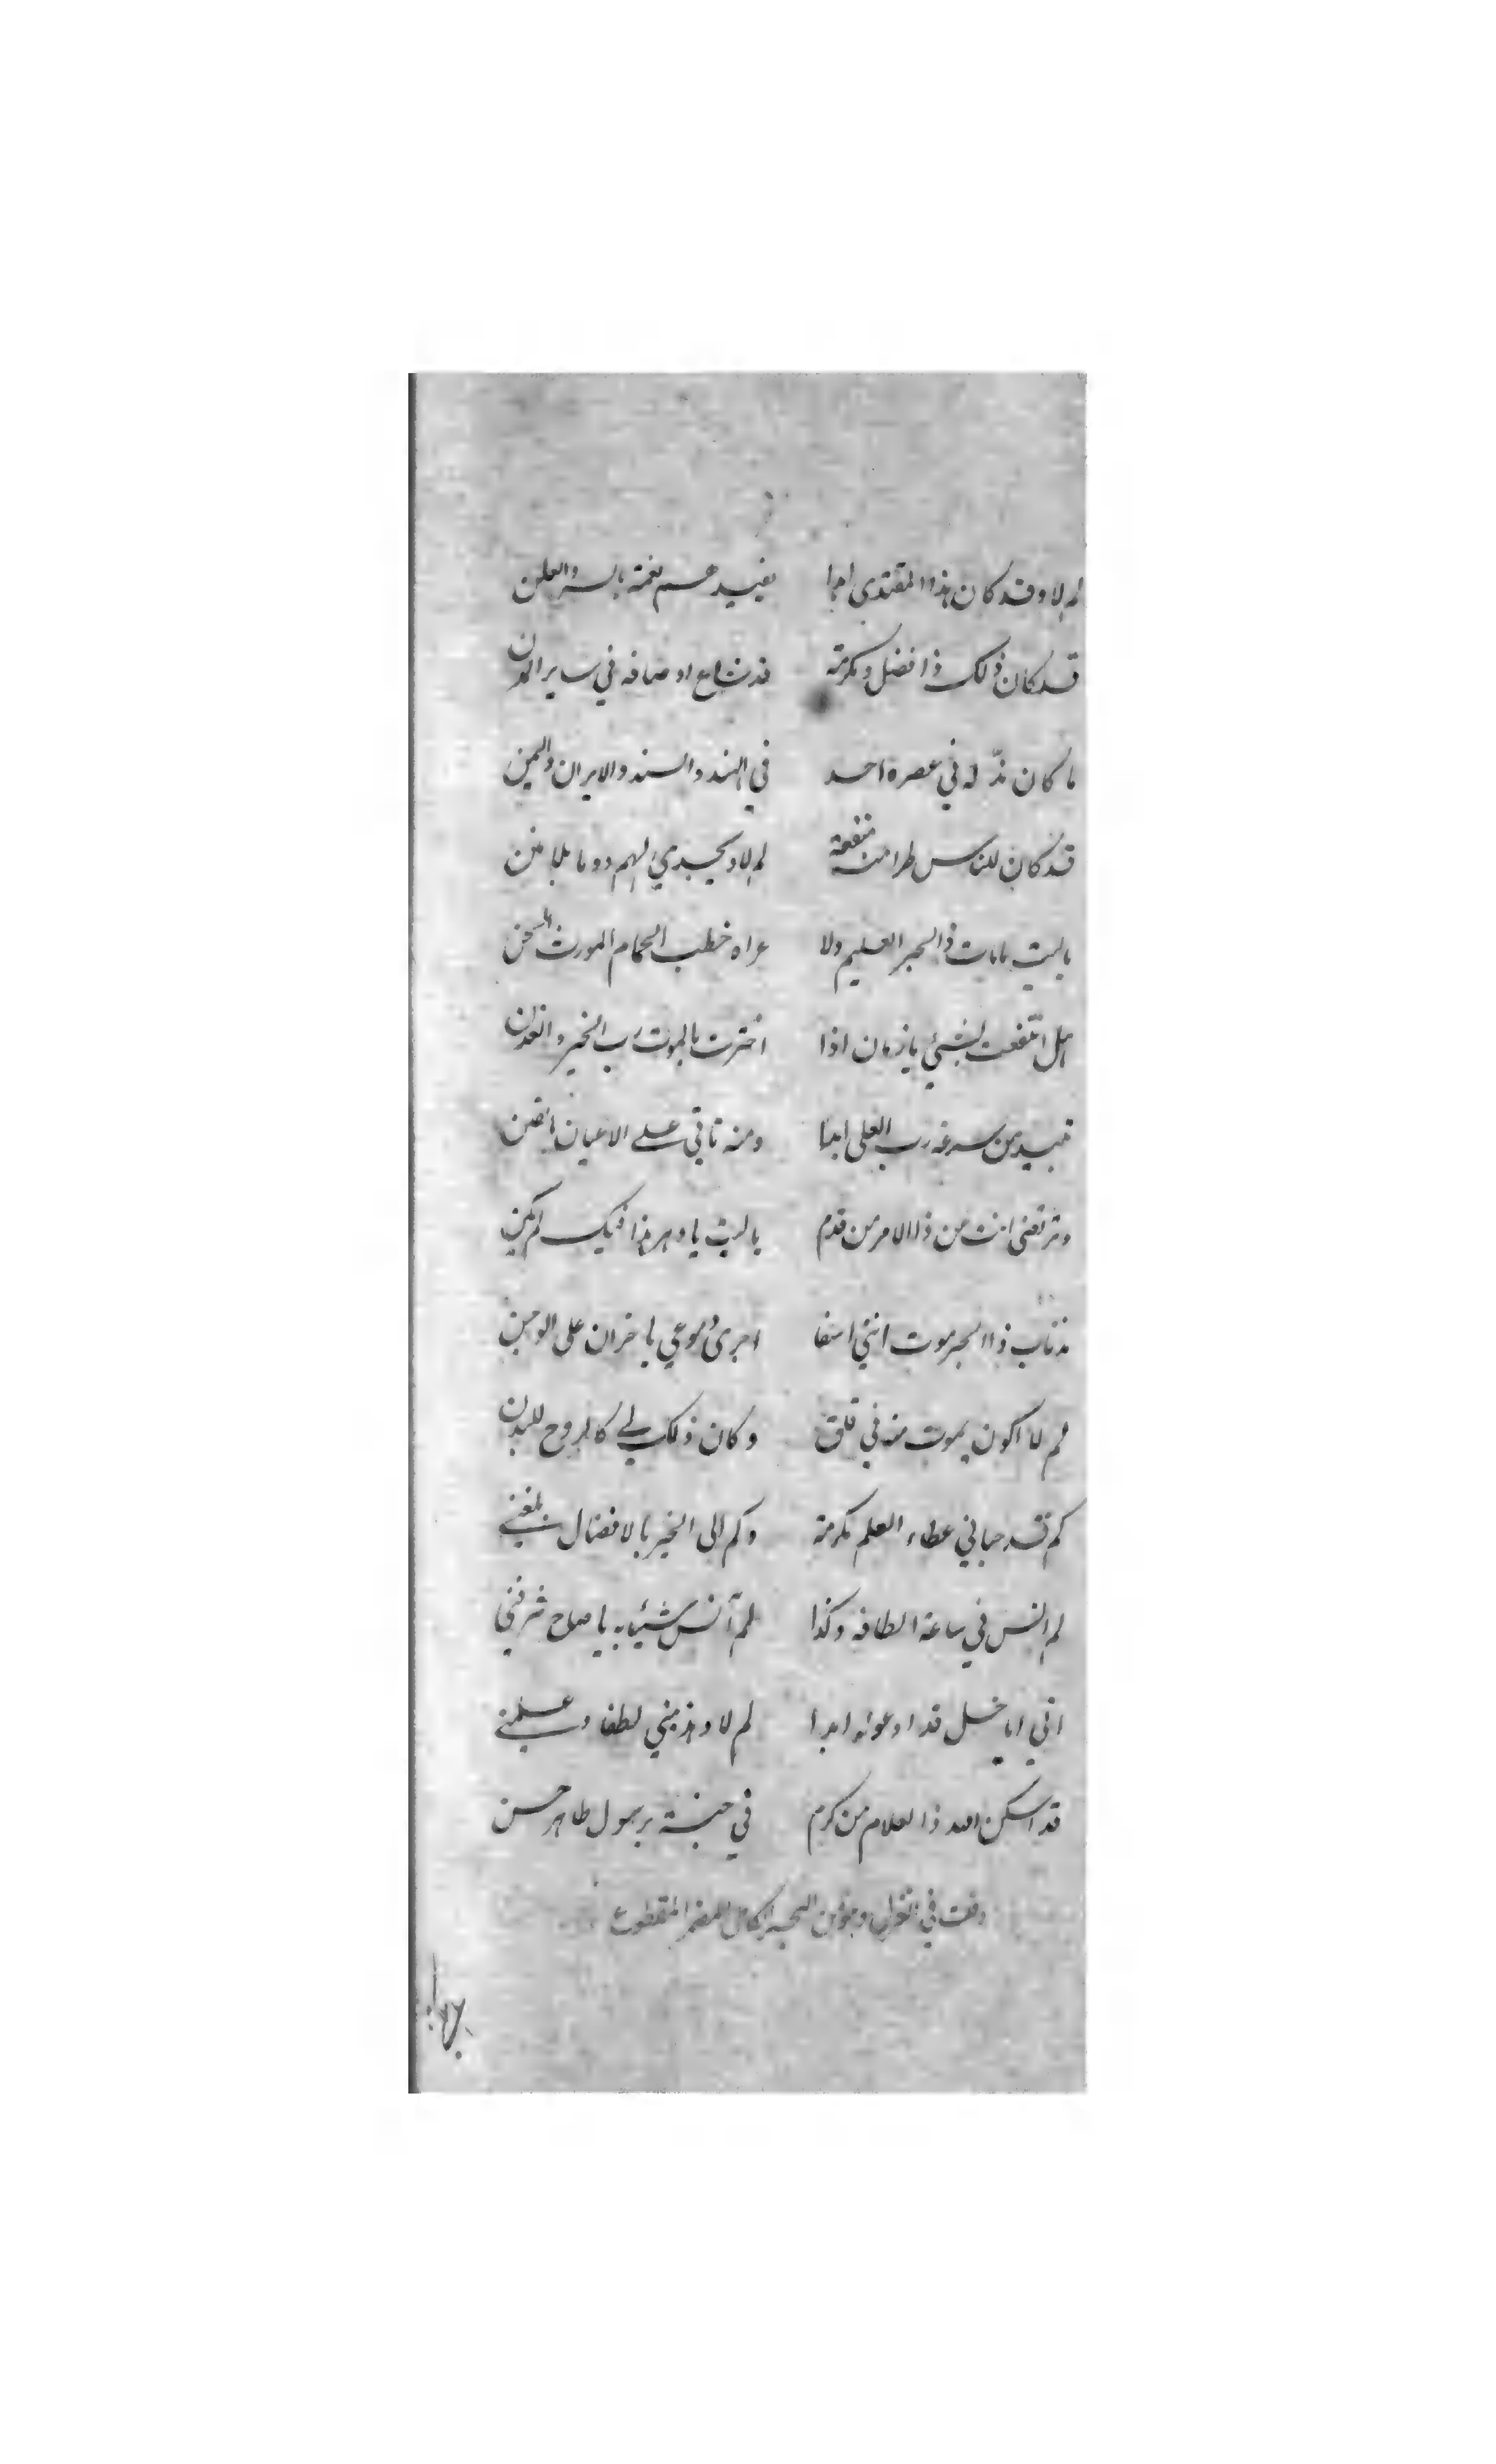 لم لا وقد كان هذا المقتدى ابدا يفيدهم نعمة بالسر والعلن
قد كان ذلك ذا فضل ومكرمة قد شاع اوصافه في ساير المدن
ما كان ندّ له في عصره احد في الهند والسند والايران واليمن
قد كان للناس طرا منه منفعة لم لا ويجدي اليهم دوما بلا منن
يا ليت ما مات ذا الحبر العليم ولا عراه خطب الحمام المورث المحن
هل انتفعت بشيئ يا زمان اذا اخترت بالموت رب الخير والفدن
تبيد من سرعة رب العلى ابدا ومنه تاتي على الاعيان بالفتن
وترتضي انت من ذا الامر من قدم يا ليت يا دهر هذا فيك لم يكن
مذ ناب ذا الحبر موت انني اسفا اجرى دموعي يا خزان على الوجن
لم لا اكون بموت منه في قلق وكان ذلك لي كالروح للبدن
كم قد حباني عطاء العلم مكرمة وكم الى الخير بالافضال بلغني
لم انس في ساعة الطافه وكذا لم آنس شيئا به يا صاح شرفني
اني ايا خل قد ادعو له ابدا لم لا وهذبني لطفا وعلمني
قد اسكن الله ذا العلام من كرم في جنة برسول طاهر حسن
وقلت في الغزل وهو من البحر الكامل المضمر المقطوع